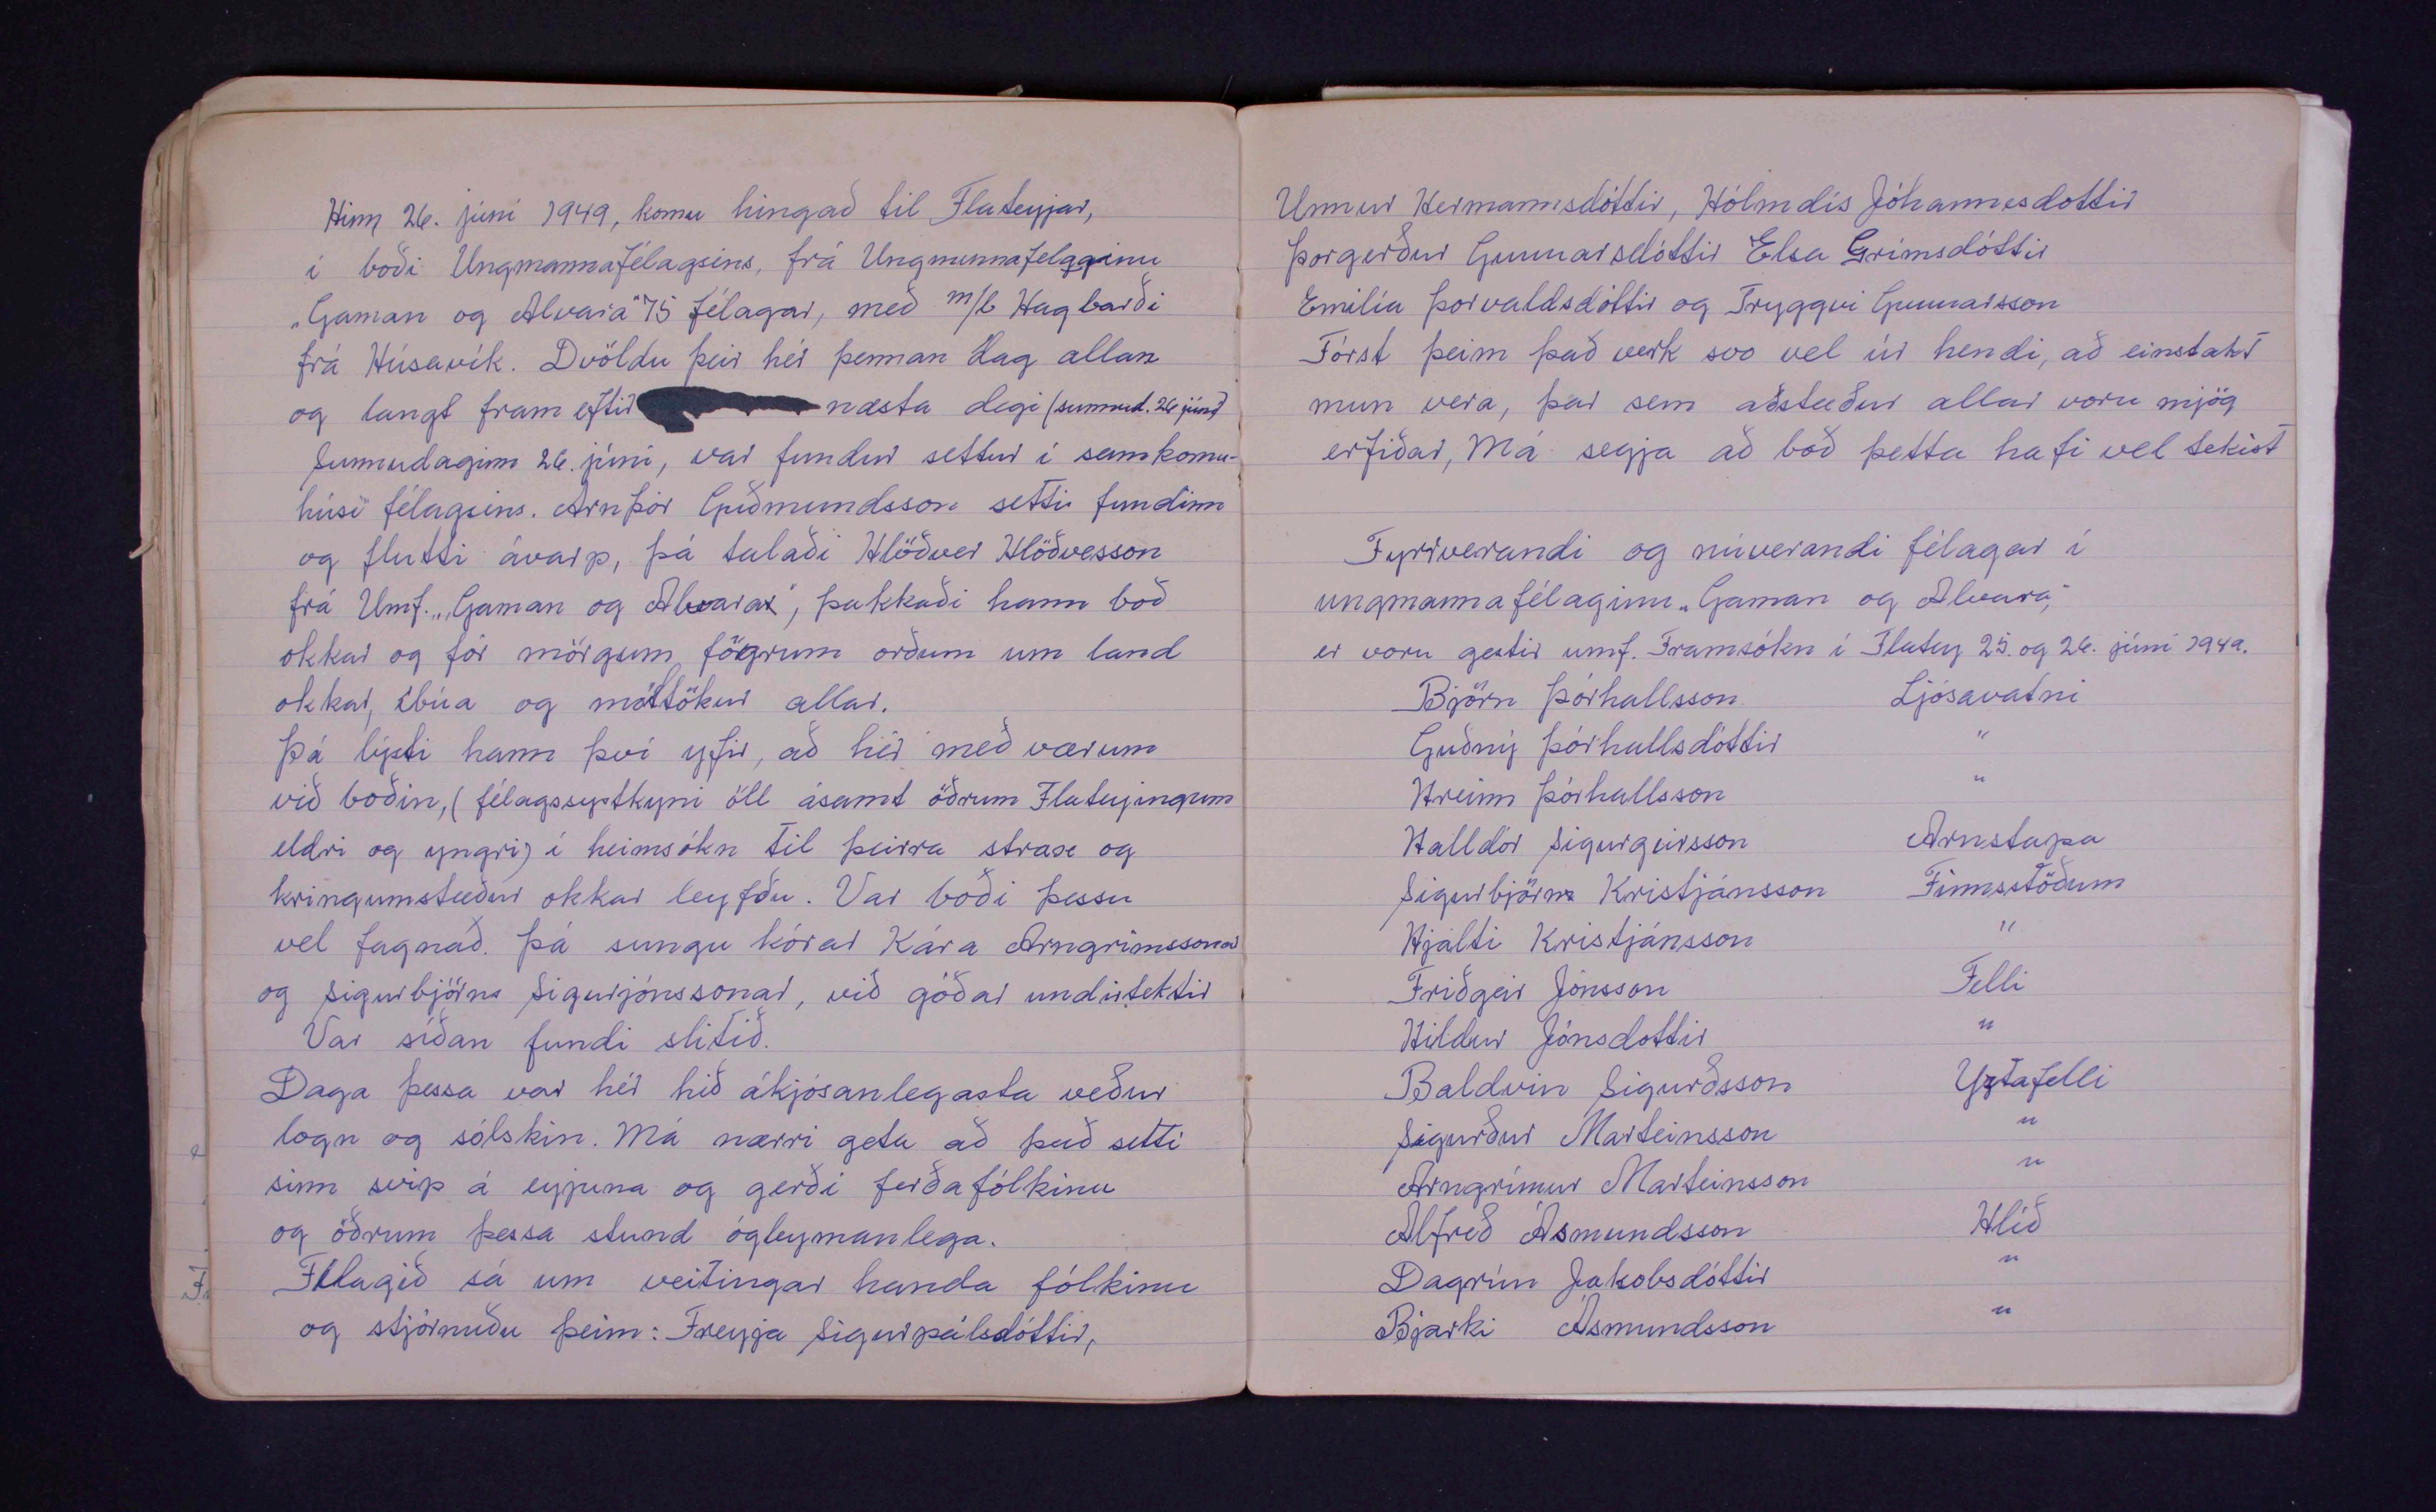 Hinn 26. júní 1949, komu hingað til Flateyjar,
í boði Ungmannafélagsins, frá Ungmennafelaginu
„Gaman og Alvara" 75 félagar, með m/b Hagbarði
frá Húsavík. Dvöldu þeir hér þennan dag allan
og langt fram eftir næsta degi (sunnud. 26 júní)
Sunnudaginn 26. júní, var fundur settur í samkomu-
húsi félagsins. Arnþór Guðmundsson setti fundinn
og flutti ávarp, þá talaði Hlöðver Hlöðvesson
frá Umf. „Gaman og Alvara", þakkaði hann boð
okkar og fór mörgum fögrum orðum um land
okkar, íbúa og móttökur allar.
Þá lýsti hann því yfir, að hér með værum
við boðin, (félagssystkyni öll ásamt öðrum Flateyingum
eldri og yngri) í heimsókn til þeirra strax og
kringumstæður okkar leyfðu. Var boði þessu
vel fagnað. Þá sungu kórar Kára Arngrímssonar
og Sigurbjörns Sigurjónssonar, við góðar undirtektir
Var síðan fundi slitið.
Daga þessa var hér hið ákjósanlegasta veður
logn og sólskin. Má nærri geta að það setti
sinn svip á eyjuna og gerði ferðafólkinu
og öðrum þessa stund ógleymanlega.
Félagið sá um veitingar handa fólkinu
og stjórnuðu þeim: Freyja Sigurpálsdóttir,
Unnur Hermannsdóttir, Hólmdís Jóhannesdottir
Þorgerður Gunnarsdóttir Elsa Grímsdóttir
Emilía Þorvaldsdóttir og Tryggvi Gunnarsson
Fórst þeim það verk svo vel úr hendi, að einstakt
mun vera, þar sem aðstæður allar voru mjög
erfiðar, Má segja að boð þetta hafi vel tekist
Fyrrverandi og núverandi félagar í
ungmannafélaginu „Gaman og Alvara,"
er voru gestir umf. Framsókn í Flatey 25. og 26. júní 1949.
Björn Þórhallsson Ljósavatni
Guðný Þórhallsdóttir "
Hreinn Þórhallsson "
Halldór Sigurgeirsson Arnstapa
Sigurbjörn Kristjánsson Finnsstöðum
Hjalti Kristjánsson "
Friðgeir Jónsson Felli
Hildur Jónsdottir "
Baldvin Sigurðsson Yztafelli
Sigurður Marteinsson "
Arngrímur Marteinsson "
Alfreð Ásmundsson Hlíð
Dagrún Jakobsdóttir "
Bjarki Ásmundsson "